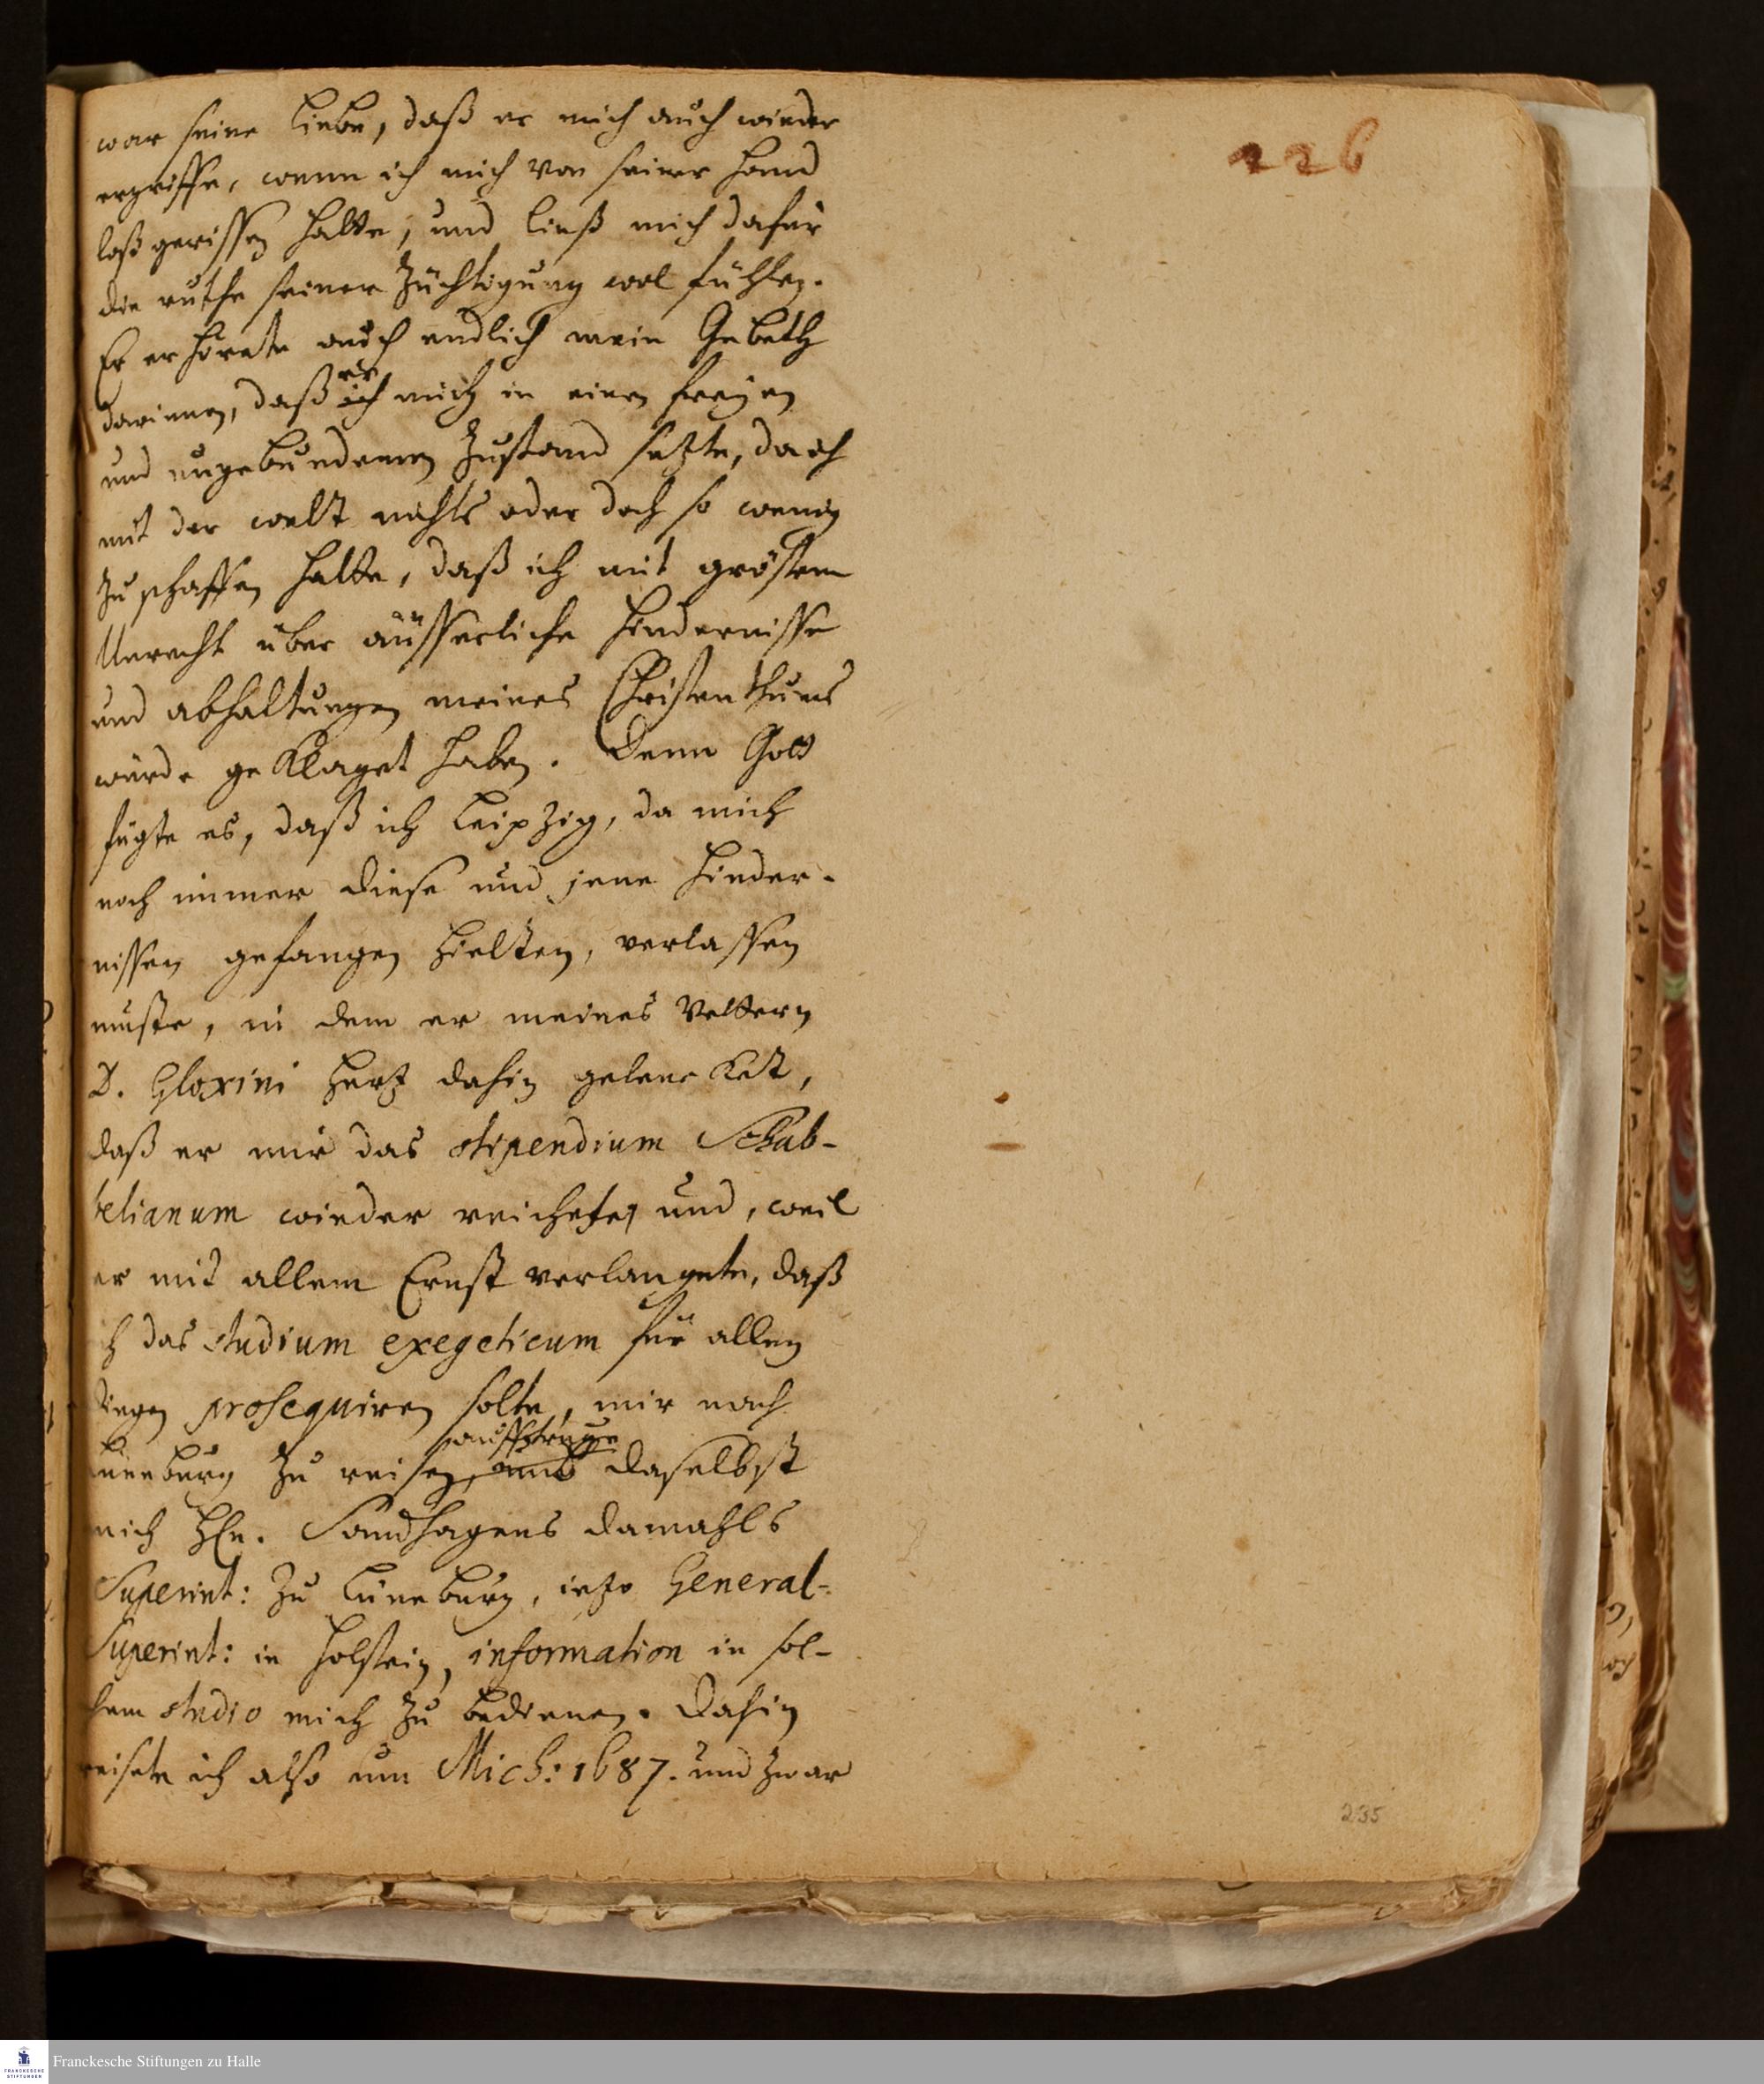 226
war seine Liebe, daß er mich auch wieder
ergriffe, wenn ich mich von seiner Hand
loß gerissen hatte, und ließ mich dafür
die ruthe seiner Züchtigung wol fühlen.
Er erhörete auch endlich mein Gebeth
darinnen, daß er ich mich in einen freyen
und ungebundenen Zustand setzte, da ich
mit der welt nichts oder doch so wenig
zu schaffen hatte, daß ich mit gröstem
Unrecht über äusserliche Hindernisse
und abhaltungen meines Christenthums
würde geklaget haben. Denn Gott
fügte es, daß ich Leipzig, da mich
noch immer diese und jene Hinder-
nissen gefangen hielten, verlassen
muste, in dem er meines Vettern
D. Gloxini Hertz dahin gelencket,
daß er mir das stipendium Schab-
belianum wieder reichete, und, weil
er mit allem Ernst verlangete, daß
ich das studium exegeticum für allen
dingen prosequiren solte, mir nach
Lüneburg zu reisen, auffetrüge und daselbst
mich Hn. Sandhagens damahls
Superint: zu Lüneburg, ietzo General-
Superint: in Holstein, information in sol-
chem studio mich zu bedienen. Dahin
reisete ich also um Mich: 1687. und zwar
235
Franckesche Stiftungen zu Halle
FRANCKESCHE
STIFTUNGEN